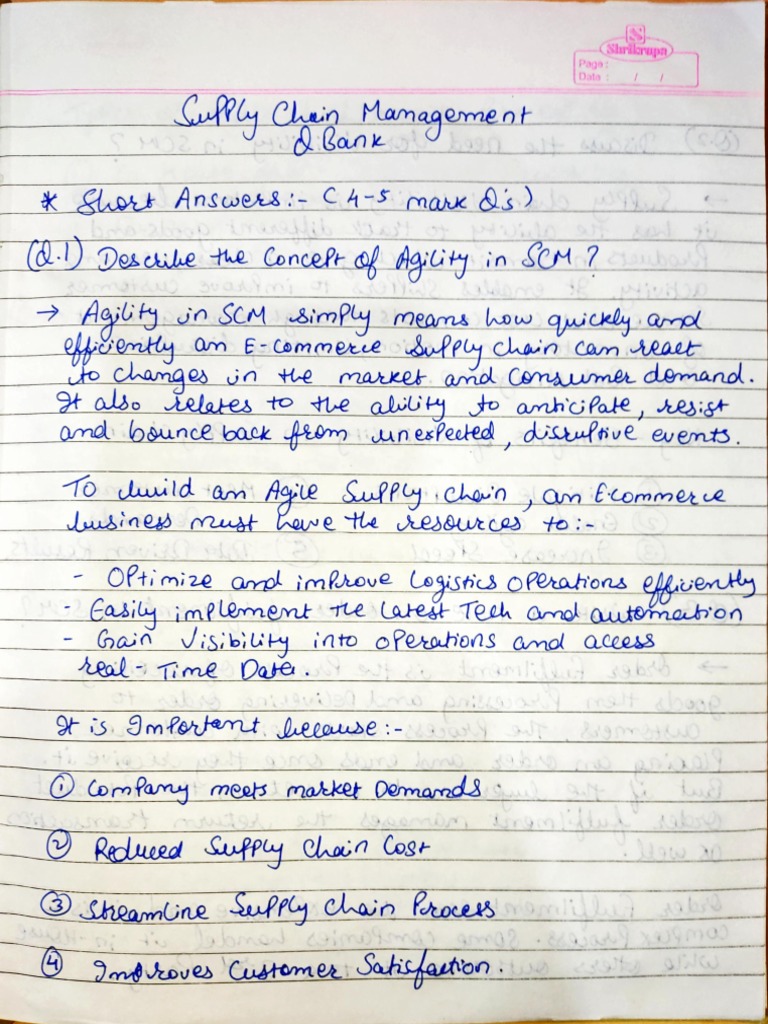 S
Shrikrupa
Page:
Date: / /
Supply Chain Management
Q Bank
* Short Answers:- (4-5 mark Q's)
(Q.1) Describe the Concept of Agility in SCM?
→ Agility in SCM simply means how quickly and
efficiently an E-commerce Supply chain can react
to changes in the market and consumer demand.
It also relates to the ability to anticipate, resist
and bounce back from unexpected, disruptive events.
To build an Agile Supply chain, an E-commerce
business must have the resources to:-
- Optimize and improve Logistics operations efficiently
- Easily implement the Latest Tech and automation
- Gain Visibility into operations and access
real-Time Data.
It is Important because:-
① Company meets market Demands
② Reduced Supply Chain Cost
③ Streamline Supply Chain Process
④ Improves Customer Satisfaction.